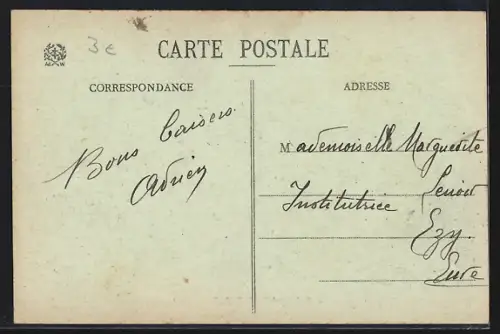 3e
CARTE POSTALE
CORRESPONDANCE
Bons baisers
Adrien
ADRESSE
Mademoiselle Marguerite
Lenoir
Institutrice
Ezy.
Eure